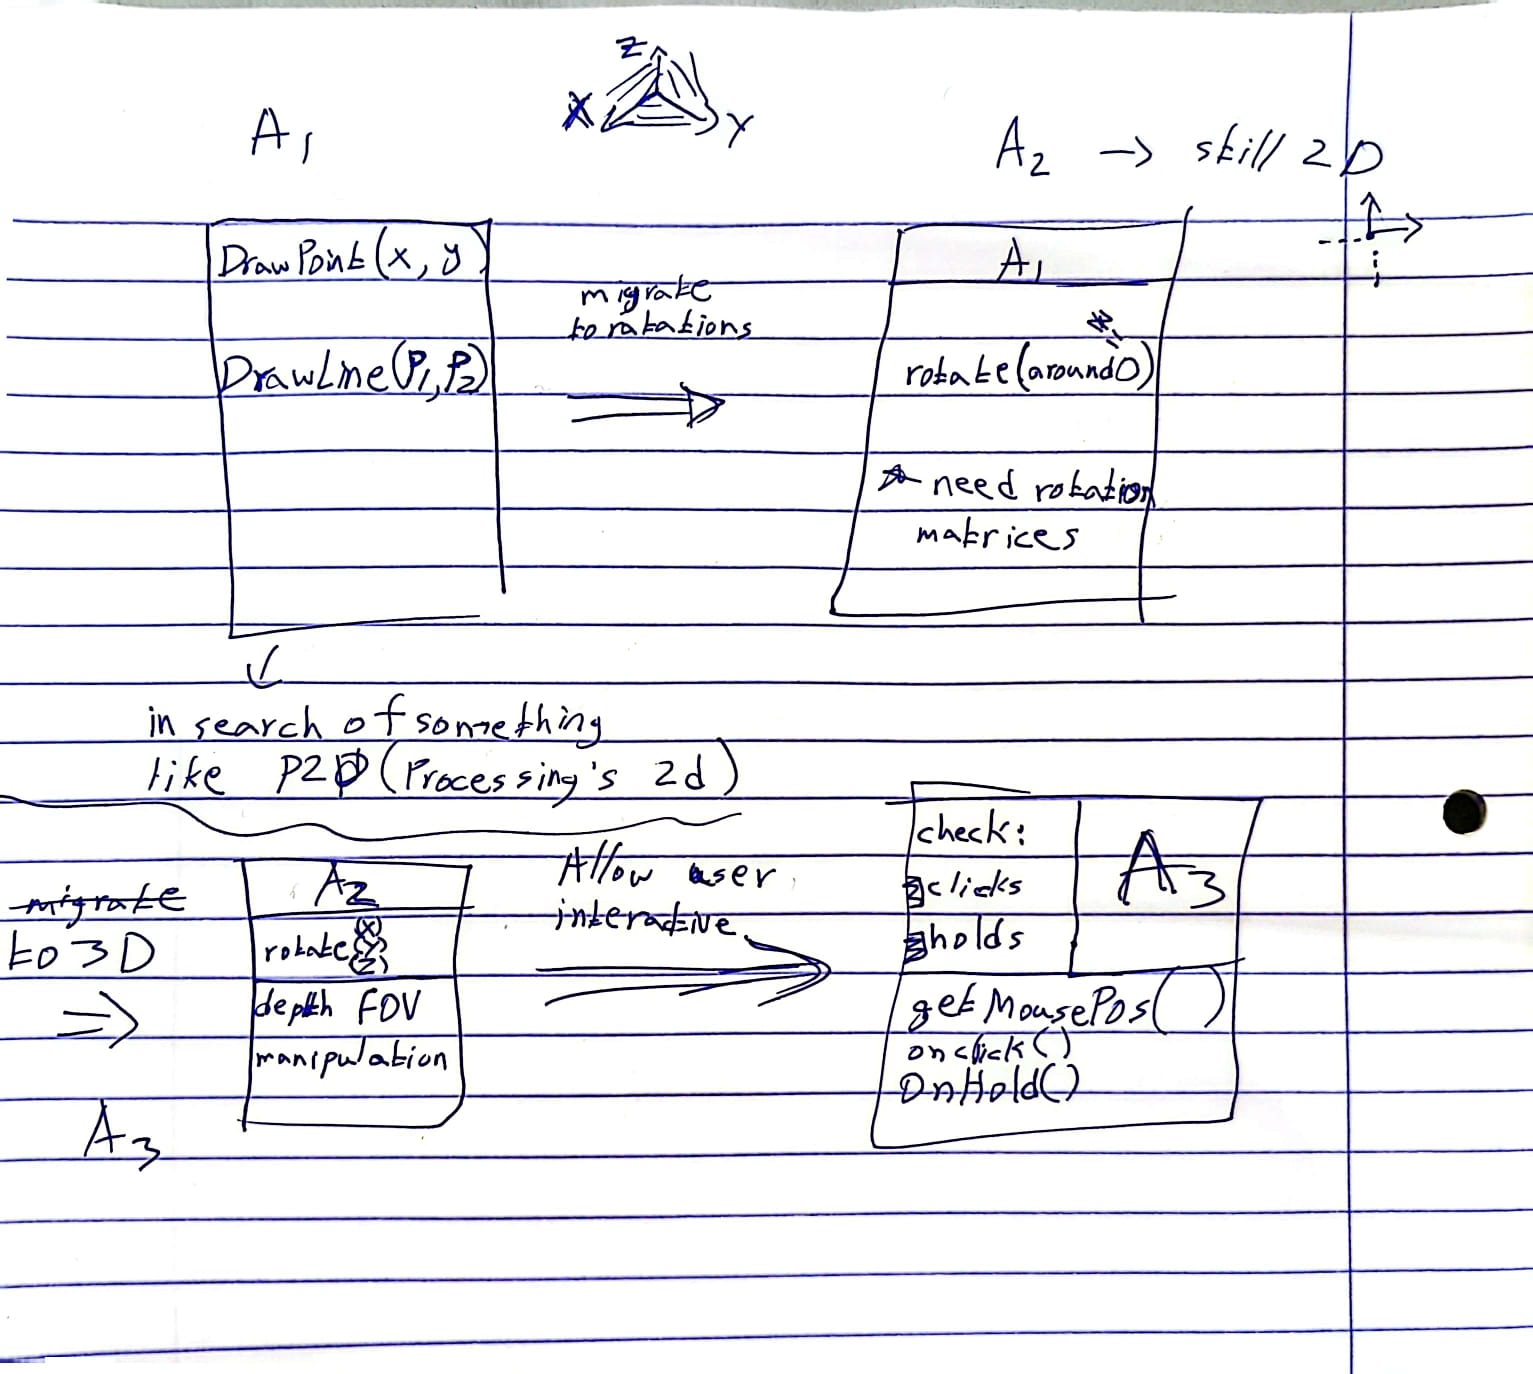 Z
X
Y
A1
A2 → skill 2D
DrawPoint(x, y)
DrawLine(P1, P2)
migrate
to rotations
A1
rotate(around O)
need rotation
matrices
in search of something
like P2D (Processing's 2d)
migrate
to 3D
A3
A2
rotate
(X)
(Y)
(Z)
depth FOV
manipulation
Allow user
interactive
check:
clicks
holds
A3
getMousePos( )
onclick()
OnHold()